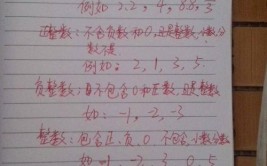 例如 2.2, 4, 8.8, 5
正整数: 不包含负数和0, 且是整数, 小数分
数不是
例如: 2, 1, 3, 5
负整数: 不包含0和正数, 且是整数
如: -1, -2, -3
整数: 包含正、负、0 不包含小数分数
如 -1, -2, 3, 0, 5